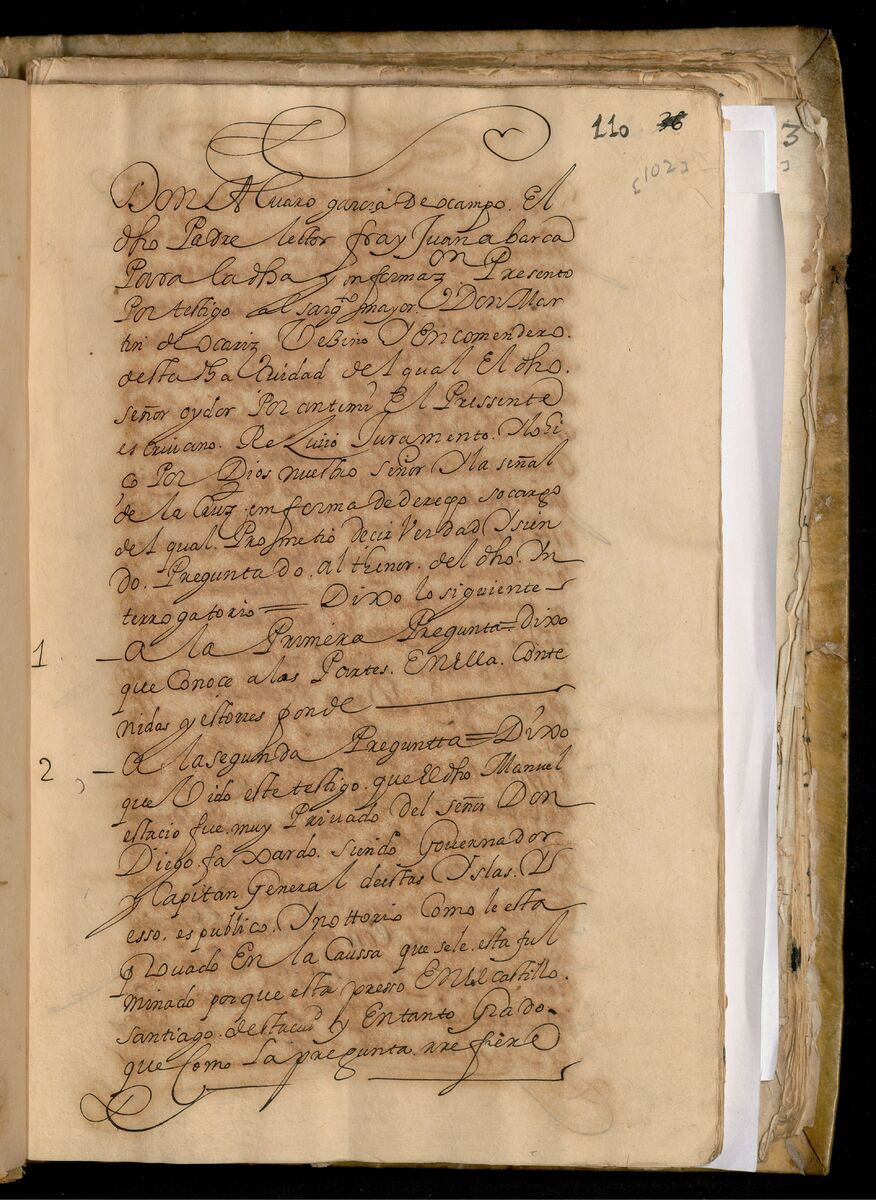 110 36
3
[102]
Don Alvaro garcia De ocampo. El
dho Padre lector fray Juan abarca
Para la dha ynformaz.on Presento
Por testigo al sargto mayor. Don Mar
tin de ocariz Vesino Y Encomendero.
desta dha Ciudad del qual El dho.
señor oydor Por antemi El Pressente
escriuano. Reciuio Juramento. Y lo hi
ço Por Dios nuestro señor Y la señal
de la Cruz en forma de derecho so cargo
del qual. Prometio decir Verdad Y sien
do. Preguntado. al thenor. del dho. Yn
terrogatorio = Dixo lo siguiente
1 – a la Primera Pregunta = dixo
que Conoce a las Partes. En ella. Conte
nidas y esto rresponde
2 – a la segunda Preguntta = Dixo
que Vido este testigo. que El dho Manuel
estacio fue. muy Priuado del señor Don
Diego. faxardo. siendo Gouernador
y Capitan General destas Yslas. Y
esso. es publico. Y nottorio Como le esta
prouado En la Caussa que se le. esta ful
minado porque esta presso En el castillo.
santiago. desta ciud y En tanto Grado.
que Como La pregunta. rrefiere